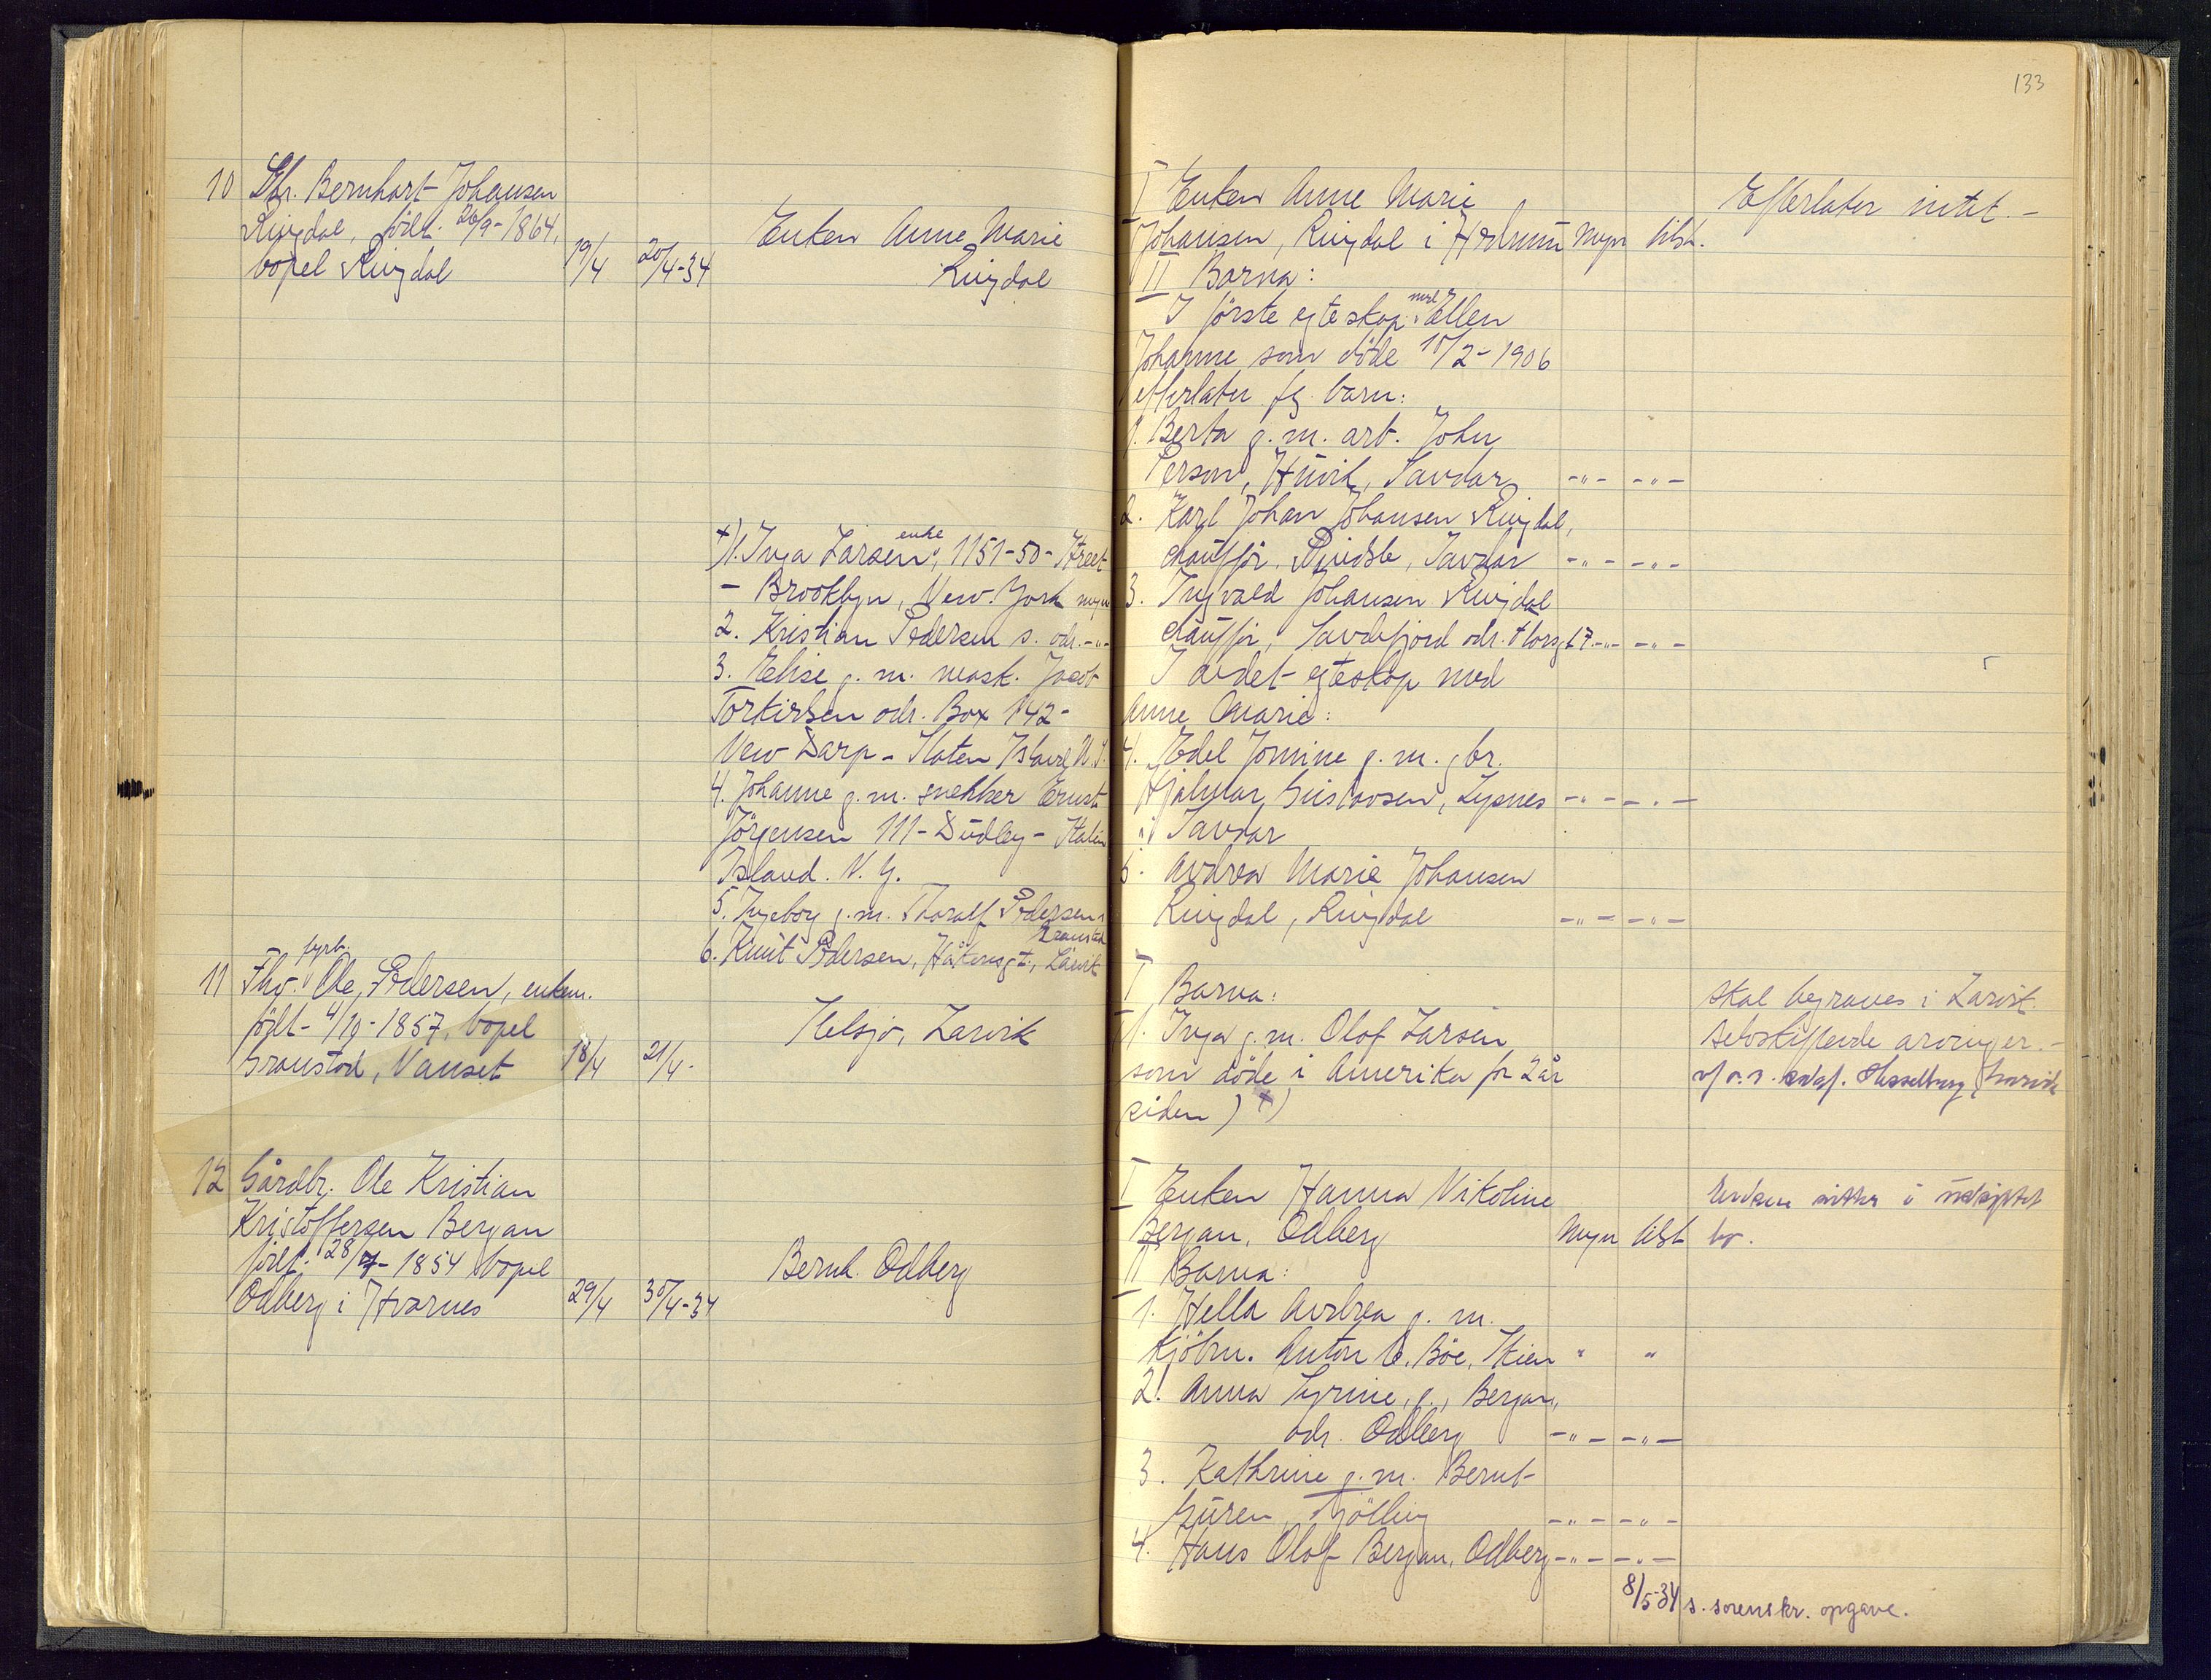 133
10 Gbr. Bernhart Johansen
Ringdal, født 26/9-1864,
bopel Ringdal 19/4 20/4-34
Enken Anne Marie
Ringdal
+) 1. Inga Larsen, enke, 1151-50-Street
- Brooklyn, New. York myn
2. Kristian Pedersen s. adr. -"-
3. Elise g. m. mask. Jacob
Torkirlsen adr. Box 142-
New Darp - Staten Island N.Y.
4. Johanne g. m. snekker Ernst
Jörgensen 111-Dudley- Staten
Island. N.Y.
5. Ingeborg g. m. Thoralf Pedersen,
Granstad
6. Knut Pedersen, Håkonsgt., Larvik
11 Fhv. fyrb. Ole Pedersen, enkem.
født 4/10-1857, bopel
Granstad, Nanset 18/4 21/4-
Helsjo, Larvik
12 Gårdbr. Ole Kristian
Kristoffersen Bergan
født. 28/7-1854 bopel
Odberg i Hvarnes 29/4 30/4-34
Bernh. Odberg
I Enken Anne Marie
Johansen, Ringdal i Hedrum Myn tilst.
Efterlater intet.-
II Barna:
I første egteskap med Ellen
Johanne som døde 10/2-1906
efterlater fg. barn:
1. Berta g. m. arb. John
Person, Huvik, Sandar -"- -"-
2. Karl Johan Johansen Ringdal,
chauffør, Sandar -"- -"-
3. Ingvald Johansen Ringdal
chauffør, Sandefjord adr. Torsgt. 7. -"- -"-
I andet egteskap med
Anne Marie:
4. Edel Jonnine g. m. gbr.
Hjalmar Gustavsen, Lysnes -"- -"-
i Sandar
5. Andrea Marie Johansen
Ringdal, Ringdal -"- -"-
I Barna:
1. Inga g. m. Olof Larsen
som døde i Amerika for 2 år
siden) +)
Skal begraves i Larvik.
Selvskiftende arvinger.-
v/ o.r. sakf. Hesselberg, Larvik
I Enken Hanna Nikoline
Bergan, Odberg Myn tilst
Enken sitter i uskiftet
bo.
II Barna:
1. Hella Andrea g. m.
Kjöbm. Anton C. Böe, Skien " "
2. Anna Syrine, g., Bergan,
adr. Odberg -"- -"-
3. Kathrine g. m. Bernt
Guren, Tjölling -"- -"-
4. Hans Olaf Bergan, Odberg -"- -"-
8/5-34 s. sorenskr. opgave.